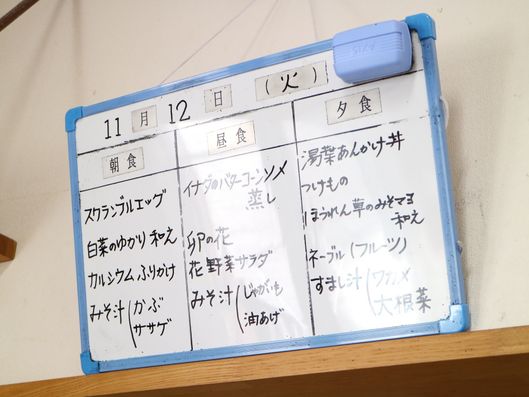 11月12日(火)
朝食
スクランブルエッグ
白菜のゆかり和え
カルシウムふりかけ
みそ汁(かぶ
ササゲ
昼食
イナダのバターコーンソメ
蒸し
卯の花
花野菜サラダ
みそ汁(じゃがいも
油あげ
夕食
湯葉あんかけ丼
つけもの
ほうれん草のみそマヨ
和え
ネーブル(フルーツ)
すまし汁(ワカメ
大根菜